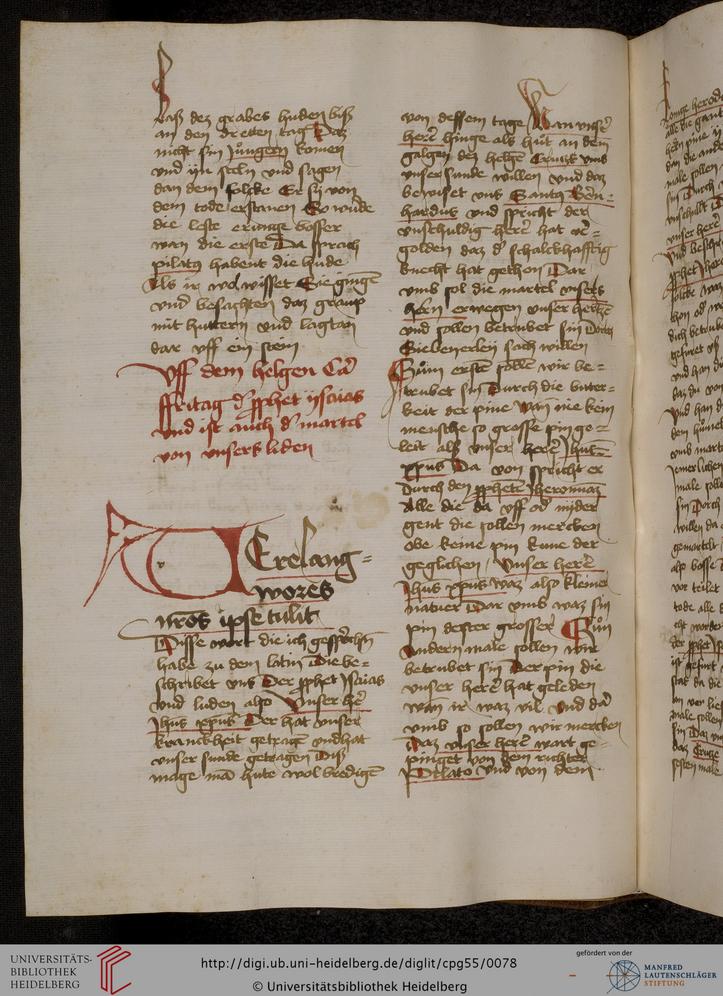 laß dez grabes huden biß
an den dretten tag Daz
nicht sin Jungern komen
vnd yn steln vnd sagen
dan dem folcke Er sy von
dem tode erstanen So wurde
die leste erunge bosser
wan die erste Da sprach
pilatus habent die hude
Als ir wol wisset Sie gingen
vnd besachten daz grapp
mit huttern vnd lagtan
dar vff ein stein
Vff dem helgen Car
ffritag der prophet ysaias
vnd ist auch der martel
von vnsers liden
VErelang=
wores
nros ipse tulit
Disse wort die ich gesprochen
habe zu dem latin Die be=
schribet vns Der prophet Jsaias
vnd luden also Vnser her
Jhus xpus Der hat vnser
kranckheit getragen vnd hat
vnser sunde getragen Diß
mage man hute wol bredigen
von dessem tage Wan vnser
here hinge als hut an dem
galgen dez helgen Crutz vmb
vnser sunde willen vnd daz
bewiset vns Santus Bern=
hardus vnd spricht der
vnschuldig here hat ver=
golden daz der schalckhafftig
knecht hat gethon Dar
vmb sol die martel vnsers
hern erwegen vnser hertze
vnd sollen betrubet sin Dorch
Siebenerleij sach willen
Zum ersten sollen wir be=
trubet sin Durch die bitter=
keit der pine Wan nie kein
mensche so grosse pin ge=
leit als vnser here Jhus
xpus Da von spricht er
Durch den propheten Jheremiaz
Alle die da vff oder nyder
gent die sollen mercken
obe keine pin kune der
geglichen Vnser here
Jhus xpus waz also kleiner
natuer Dar vmb waz sin
pin dester grosser Zum
Andern male sollen wir
betrubet sin Der pin die
vnser here hat geleden
wan ir waz vil Vnd dar
vmb so sollen wir mercken
Daz vnser here wart ge=
pinget von dem richter
Pilato Vnd von dem
UNIVERSITÄTS-
BIBLIOTHEK
HEIDELBERG
http://digi.ub.uni-heidelberg.de/diglit/cpg55/0078
© Universitätsbibliothek Heidelberg
gefördert von der
MANFRED
LAUTENSCHLÄGER
STIFTUNG